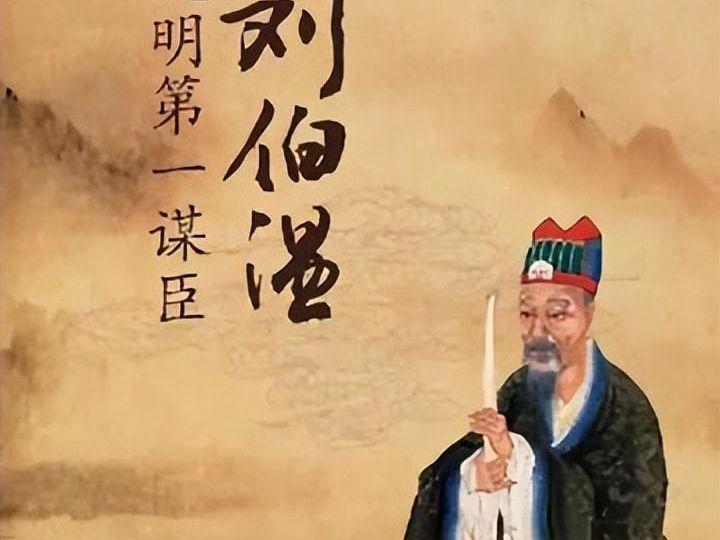 刘伯温
明第一谋臣